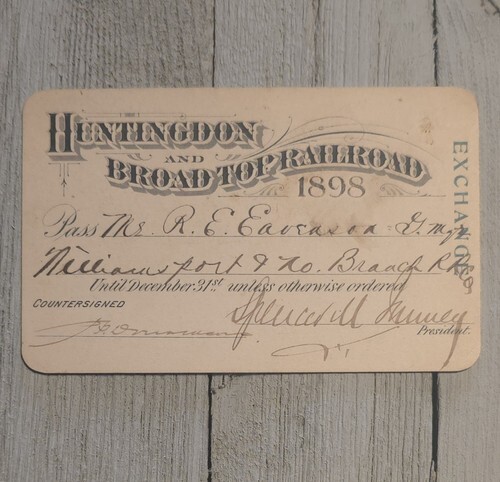 HUNTINGDON
AND
BROAD TOP RAILROAD
1898
EXCHANGE
Pass Mr. R. E. Eavenson G. Mgr
Williamsport & No. Branch R.R.
Until December 31st unless otherwise ordered
COUNTERSIGNED
Spencer M
President.